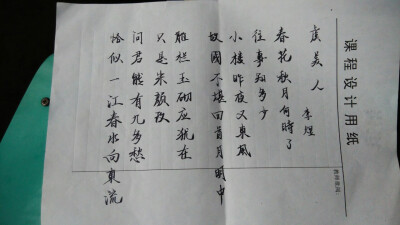 课程设计用纸
虞美人
李煜
春花秋月何時了
往事知多少
小楼昨夜又東風
故國不堪回首月明中
雕栏玉砌应犹在
只是朱颜改
问君能有几多愁
恰似一江春水向東流